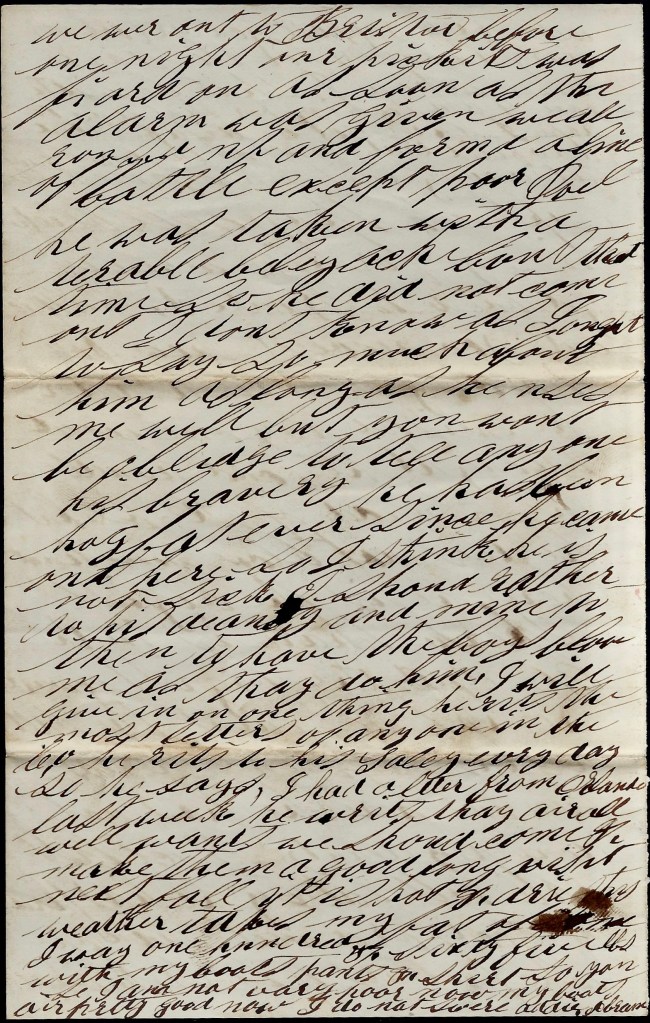 we wer out to Bristoe before
one night our pickits was
fiard on as soon as the
alarm was given weall
up and formd a line
of battle except poor
he was taken with a
terable bleyack bout that
time so he did not come
out I dont know as I ought
to say so much about
him as long as he uses
me well but you wont
be oblidge to tell any one
his bravery he has bin
hog fat ever since he came
out here so I think he is
not sick I shoud rather
do his and mine to
then to have the boys blow
me as thay do him, I will
give in on one thing he rits the
most letters of any one in the
Co he rits to his every day
so he says, I had a leter from Orlando
last week he writ thay air all
well wants we shoud come &
make them a good long visit
next fall it is hot & drie this
weather takes my fat of
I way one hundred & sixty five lbs
with my boots pants & shirt so you
se I am not vary poor now my boots
air prety good now I do not were Abram